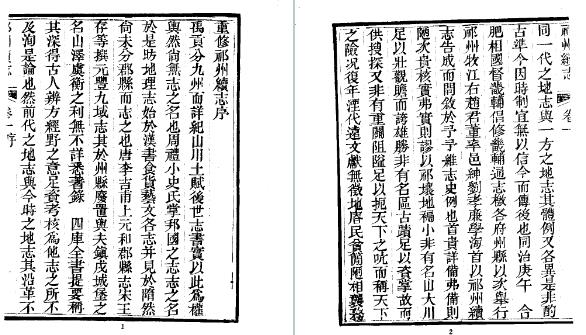 重修祁州續志序
禹貢分九州而詳紀山川土賦後世志書實以此為權
輿然尚無志之名也周禮小史氏掌邦國之志志之名
於是昉地理志始於漢書食貨藝文各志並見於隋然
尚未分郡縣而志之也唐李吉甫上元和郡縣志宋王
存等撰元豐九域志其於州縣廢置與夫鎮戍城堡之
名山澤虞衡之利無不詳悉書錄 四庫全書提要稱
其深得古人辨方經野之意足資考核為他志之所不
及洵是論也然前代之地志與今時之地志其沿革不
卷一序
1
祁州續志 卷一
同一代之地志與一方之地志其體例又各異是非酌
古準今因時制宜無以信今而傳後也同治庚午 合
肥相國督畿輔倡修畿輔通志檄各府州縣以次舉行
祁州牧江右趙君董率邑紳劉孝廉學海首以祁州續
志告成而問敘於予予維志史例也首貴詳備弗備則
隨次貴核實弗實則謬以祁壤地褊小非有名山大川
足以壯觀瞻而誇雄勝非有名區古蹟足以資故而
供搜採又非有重關阻隘足以扼天下之吭而稱天下
之險況復年湮代遠文獻無徵地瘠民貧簡陋相襲
2